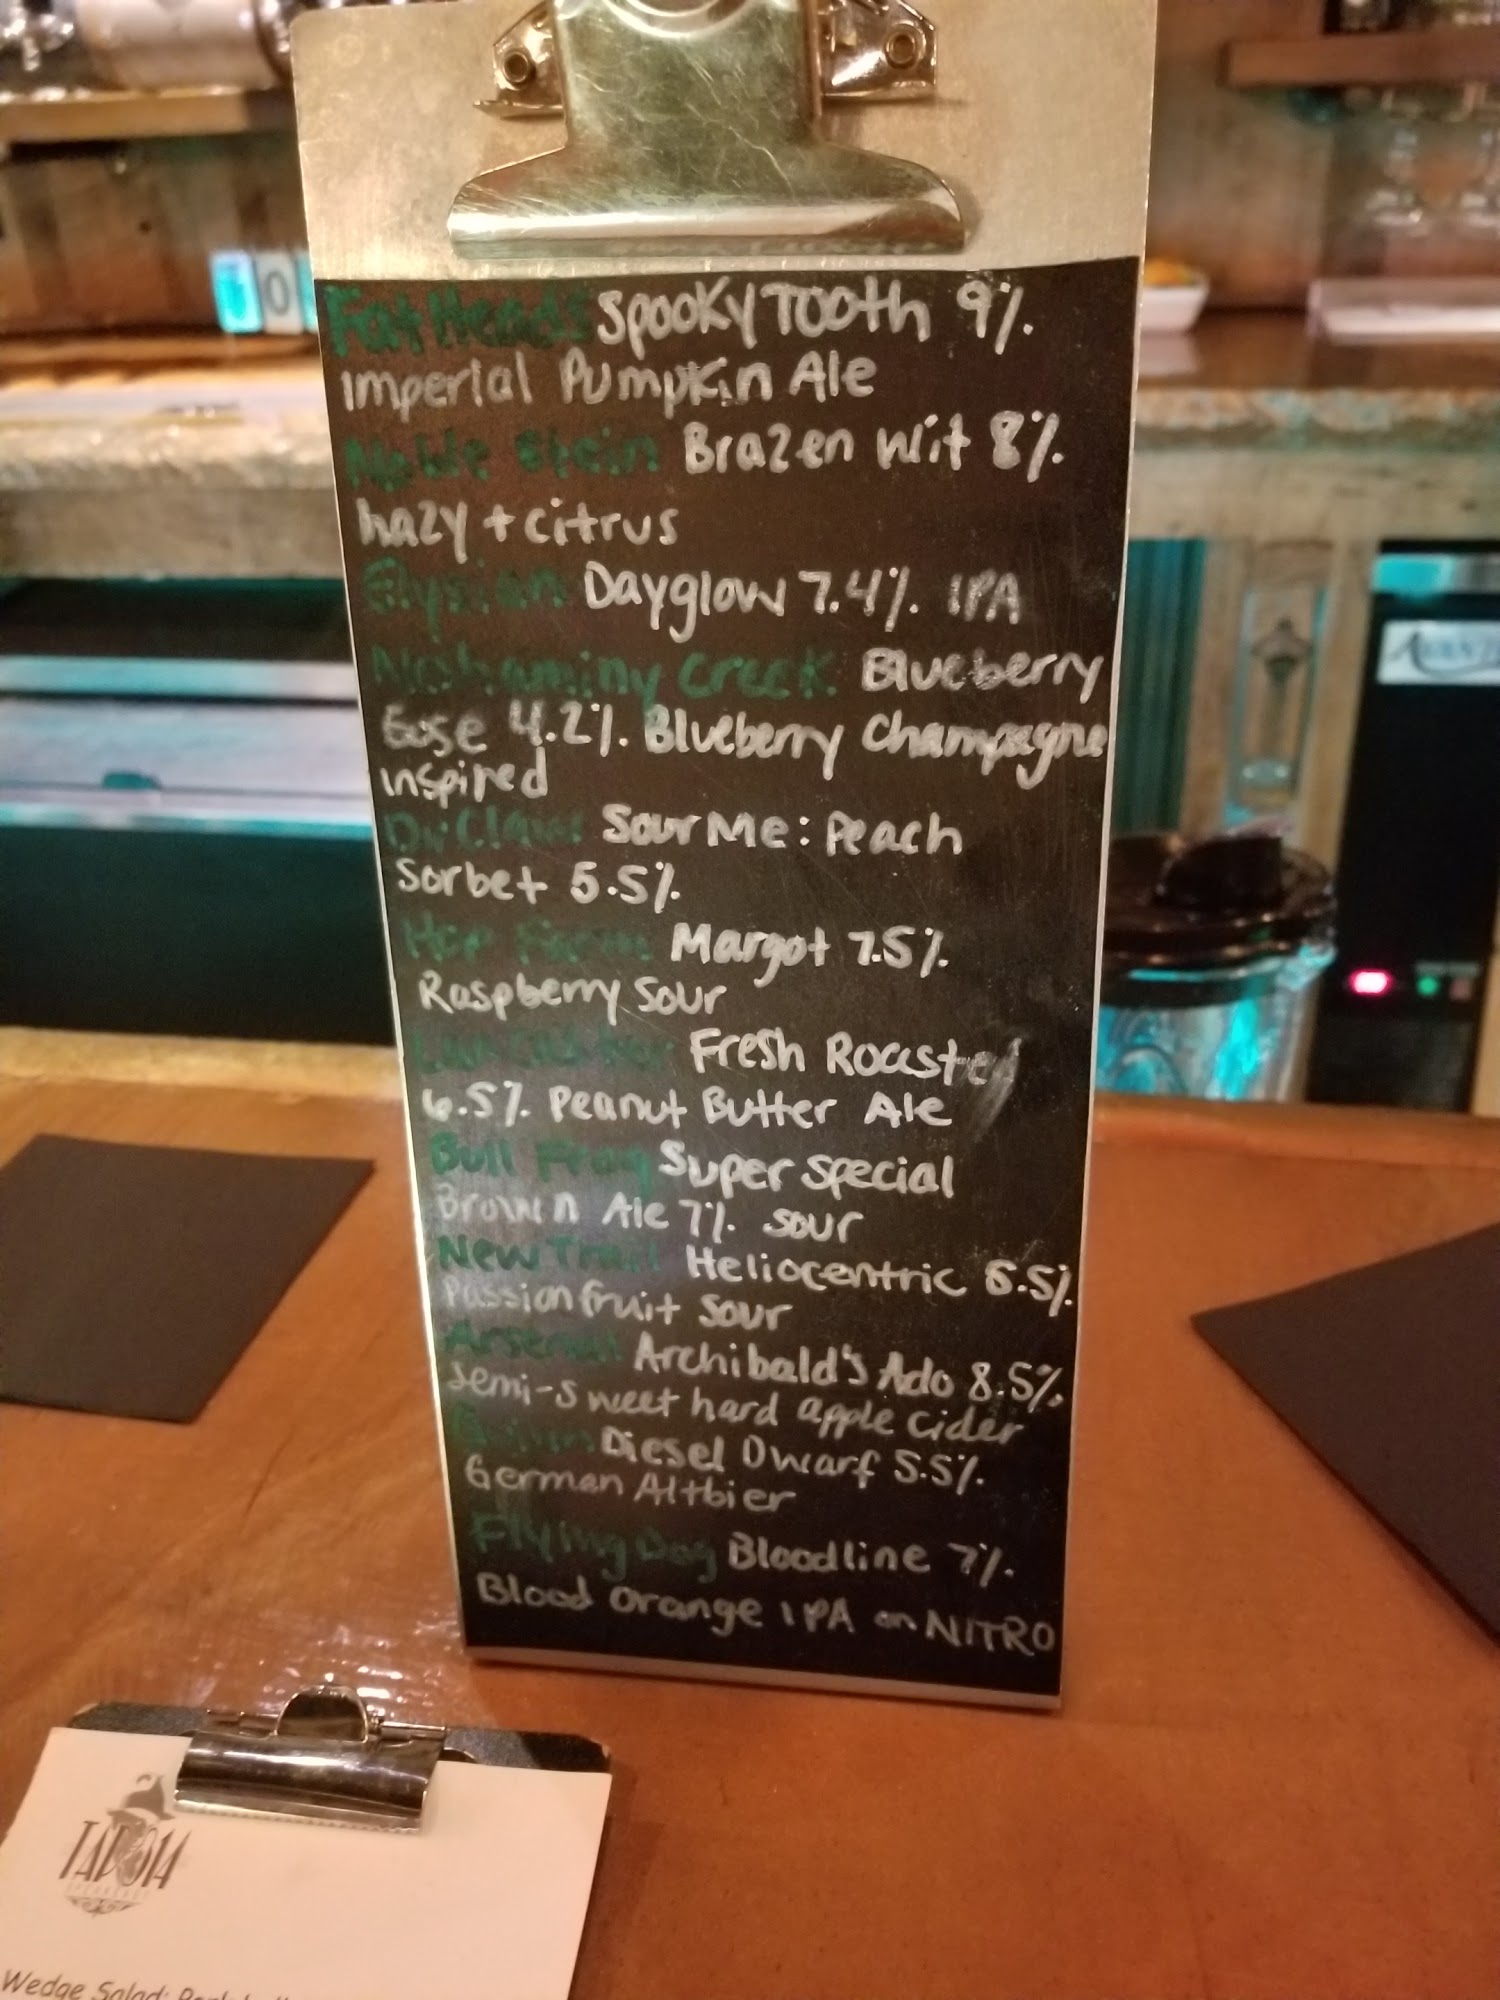 Fat Heads Spooky Tooth 9%.
Imperial Pumpkin Ale
Noble Stein Brazen Wit 8%.
hazy + citrus
Elysian Dayglow 7.4%. IPA
Neshaminy Creek Blueberry
Ease 4.2%. Blueberry Champagne
inspired
DuClaw Sour Me: Peach
Sorbet 5.5%.
Hop Farm Margot 7.5%.
Raspberry Sour
Fresh Roasted
6.5%. Peanut Butter Ale
Bull Frog Super Special
Brown Ale 7%. sour
New Trail Heliocentric 5.5%.
Passionfruit Sour
Arsenal Archibald's Ado 8.5%.
Semi-sweet hard apple cider
Diesel Dwarf 5.5%.
German Altbier
Flying Dog Bloodline 7%.
Blood Orange IPA on NITRO
Wedge Salad: